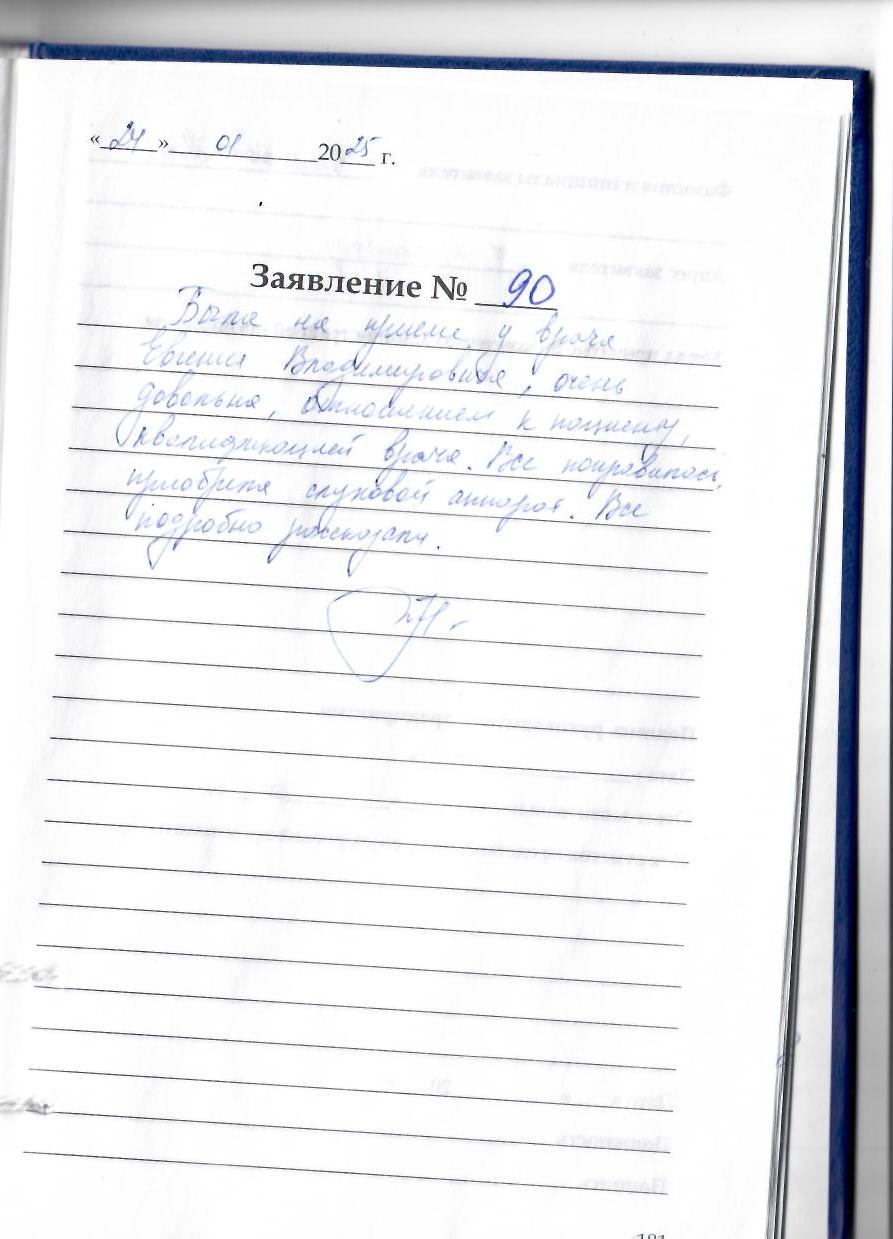 «24» 01 2025 г.
Заявление № 90
Была на приеме, у врача
Евгения Владимировича, очень
довольна, отношением к пациенту,
квалификацией врача. Все понравилось,
приобрела слуховой аппарат. Все
подробно рассказали.